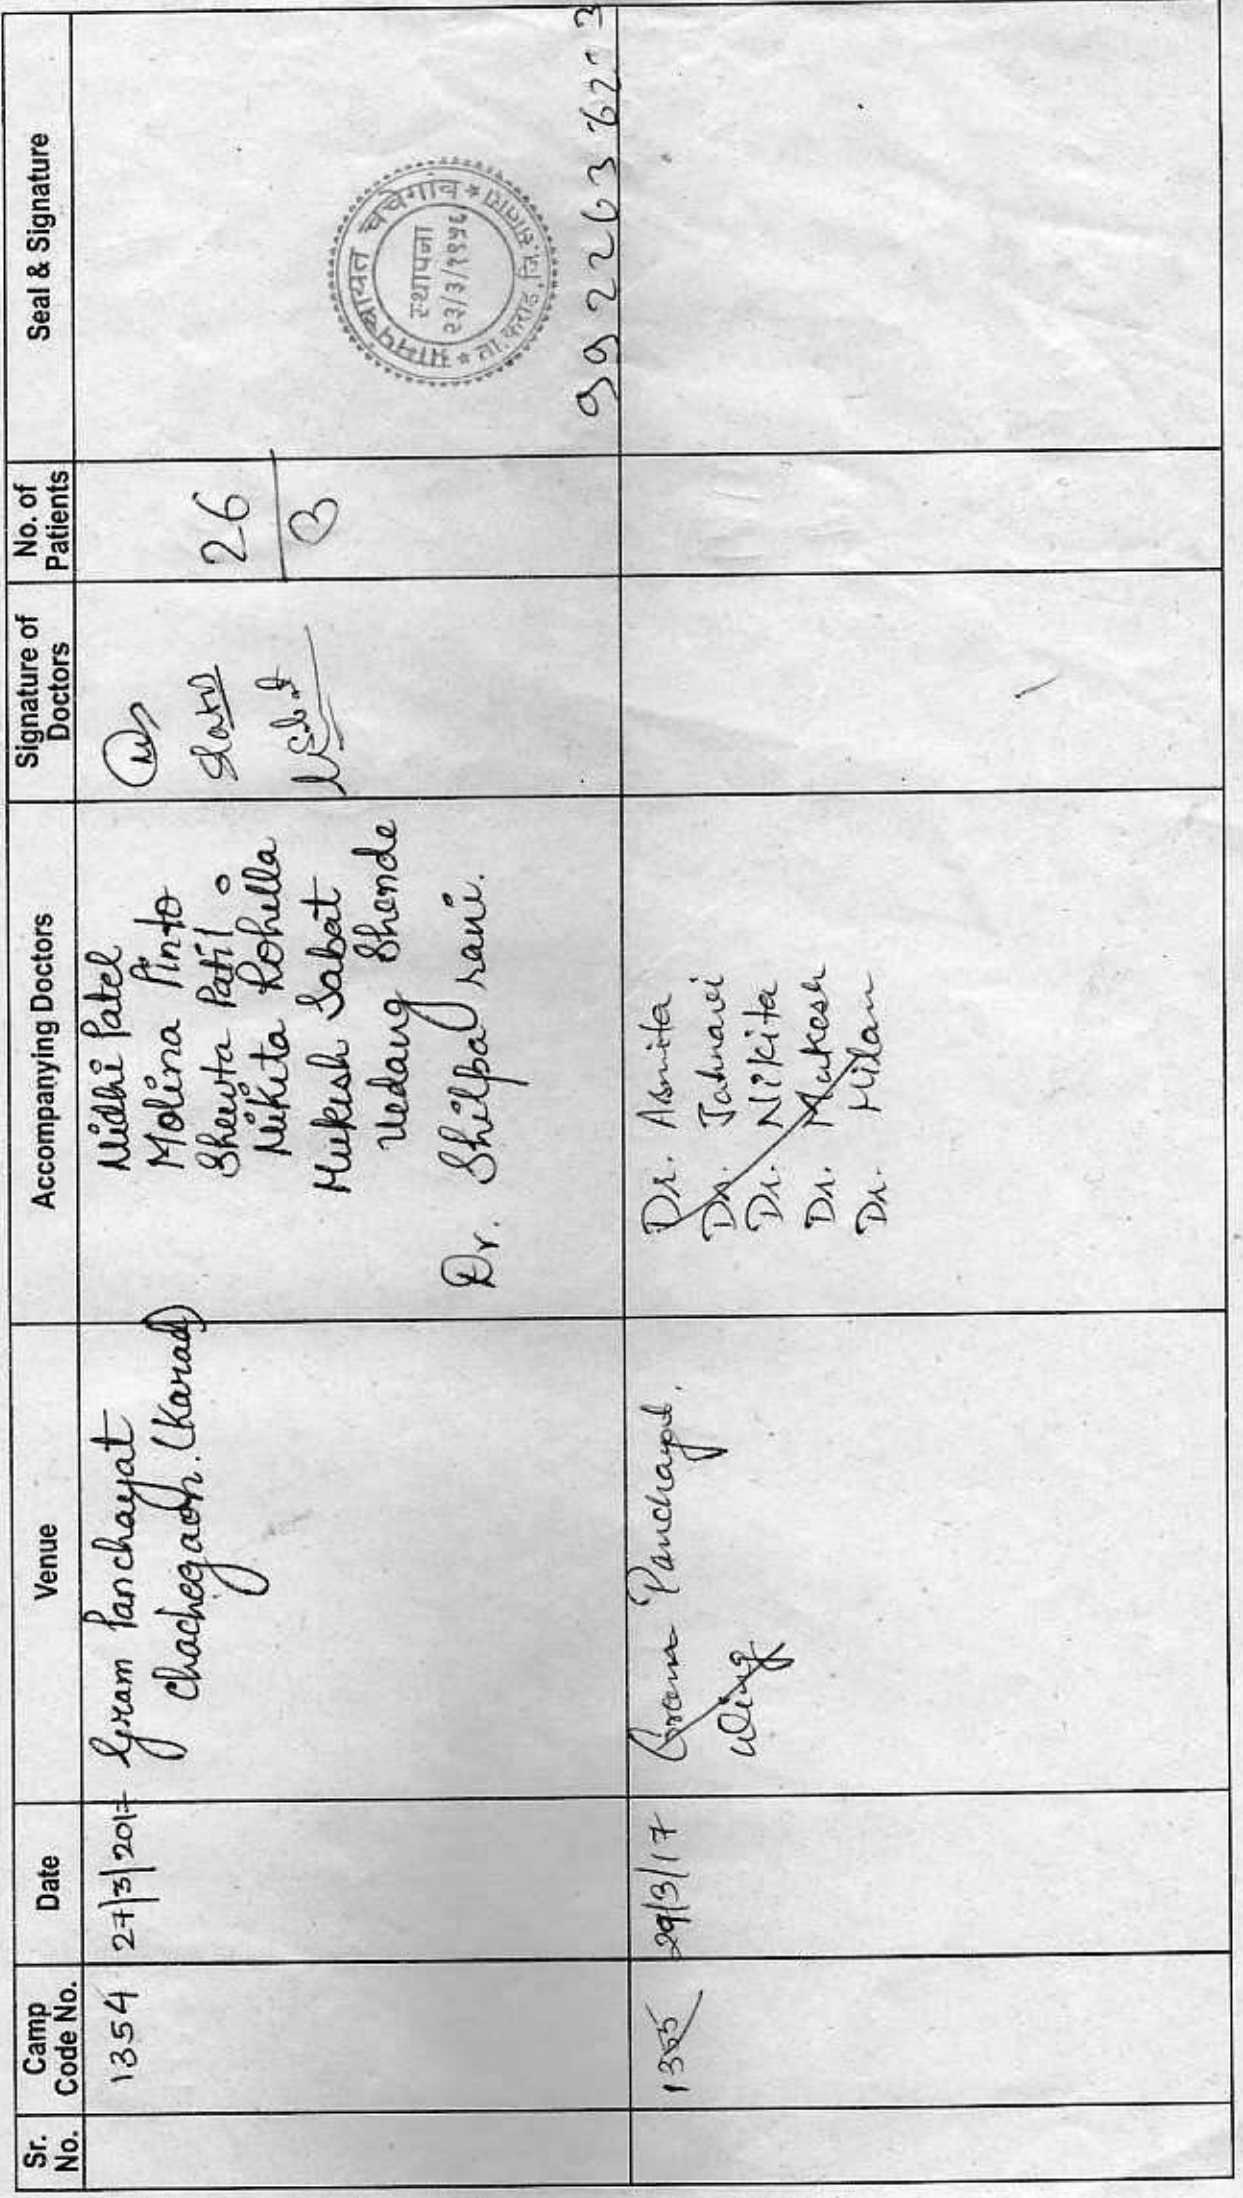 Sr. No.
Camp Code No.
Date
Venue
Accompanying Doctors
Signature of Doctors
No. of Patients
Seal & Signature
1354
27/3/2017
Gram Panchayat
Chachegaon. (Karad)
Nidhi Patel
Molina Pinto
Shewta Patil
Nikita Rohilla
Mukesh Sabat
Vedang Shende
Dr. Shilpa rani.
26
ग्रामपंचायत चचेगांव * ता.कराड, जि.सातारा *
स्थापना
२३/३/१९५६
1355
29/3/17
Grama Panchayat,
Wing
Dr. Asmita
Dr. Jahnavi
Dr. Nikita
Dr. Mukesh
Dr. Milan